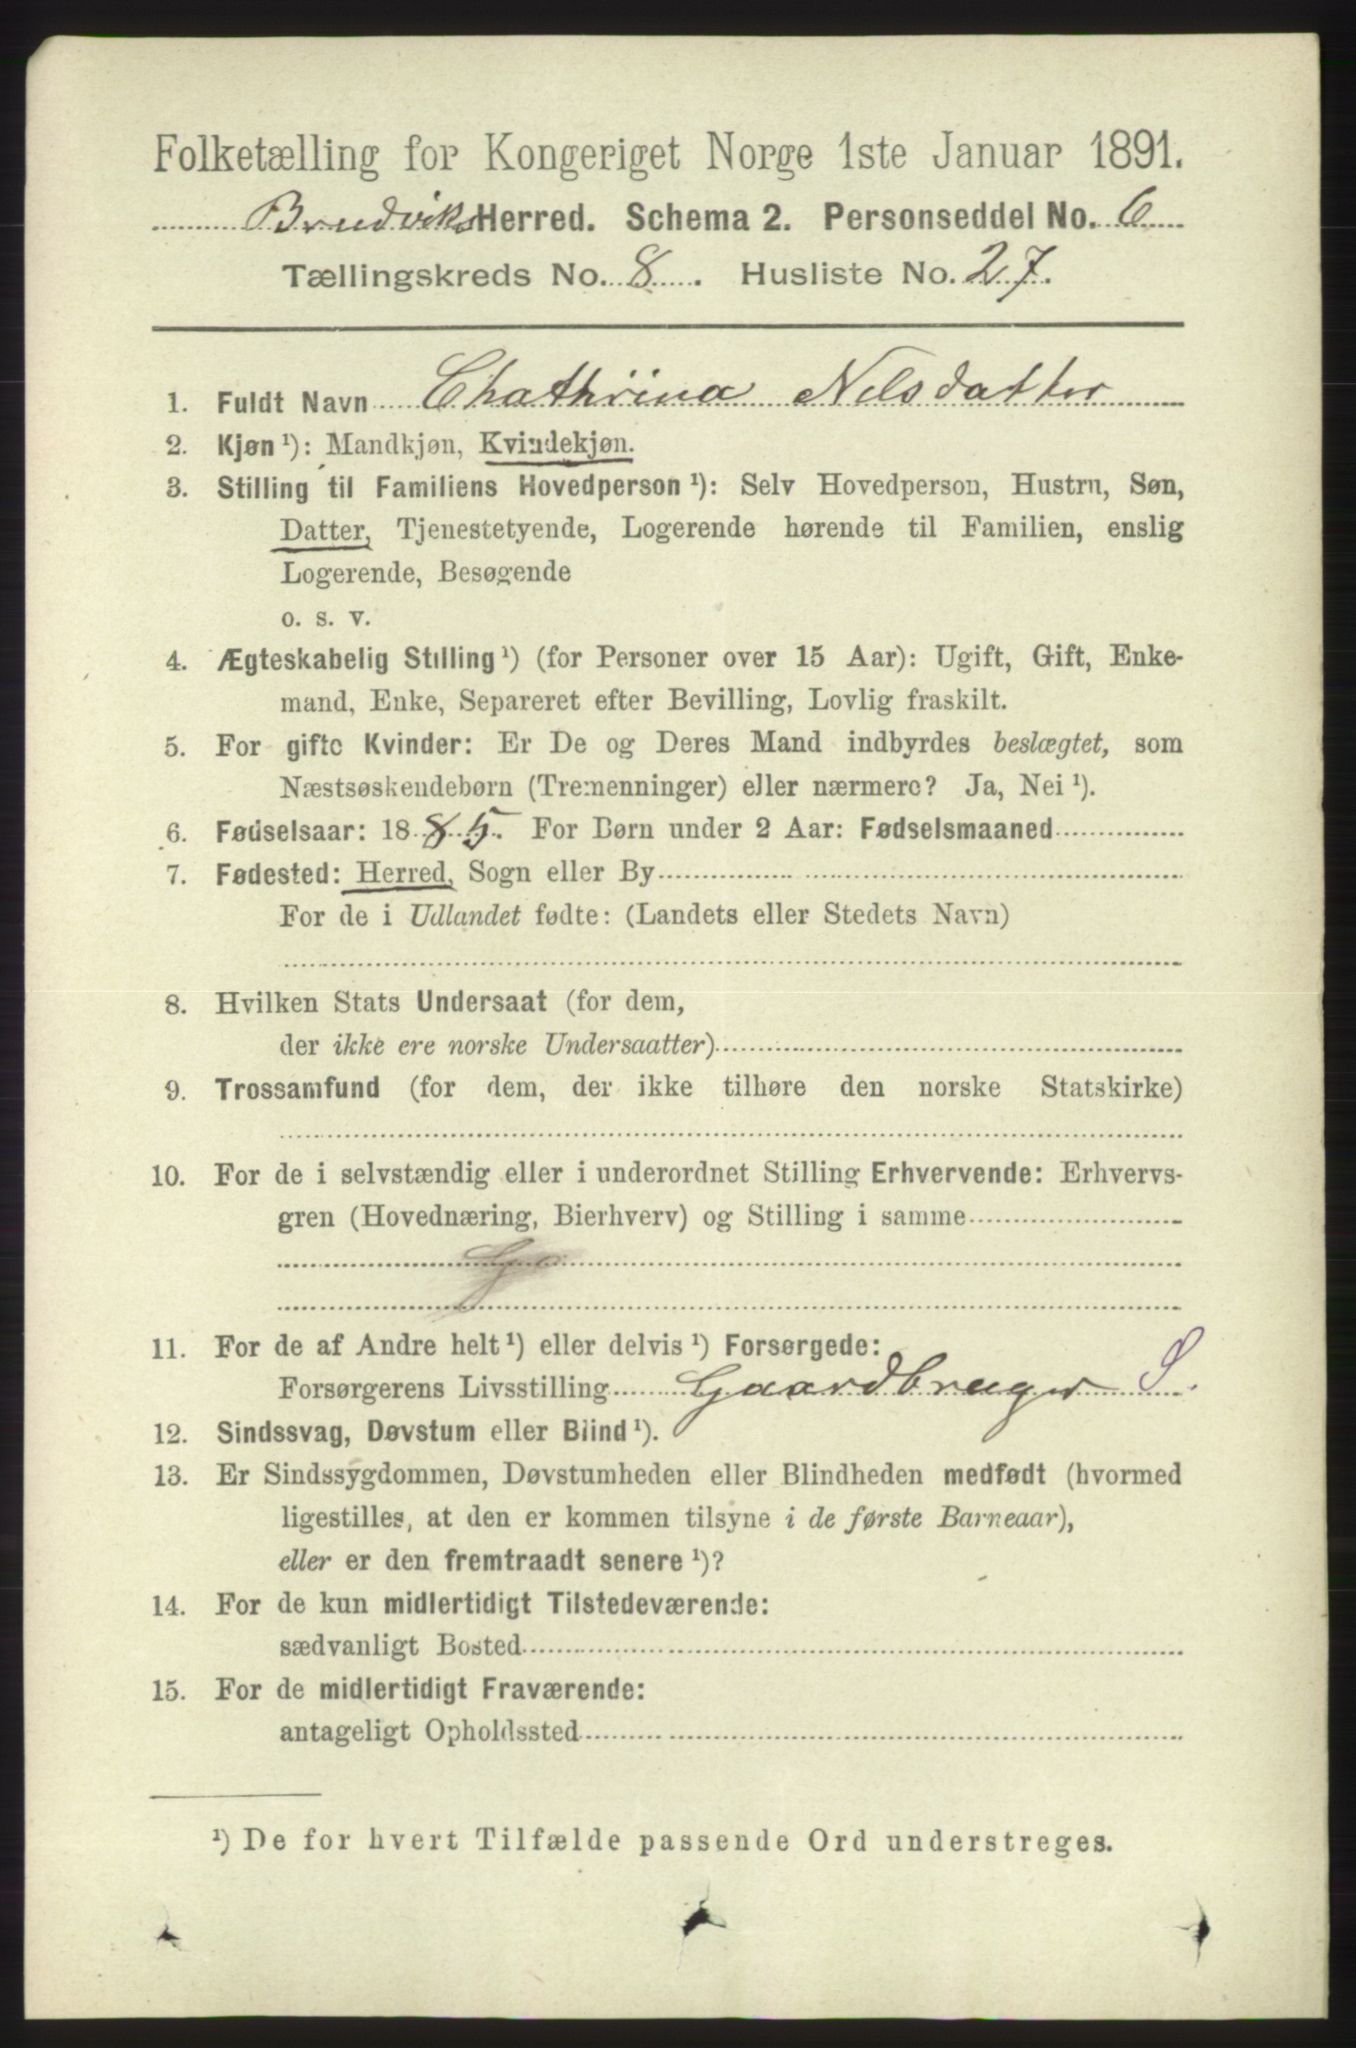 Folketælling for Kongeriget Norge 1ste Januar 1891.
Brudviks Herred. Schema 2. Personseddel No. 6
Tællingskreds No. 8. Husliste No. 27.
1. Fuldt Navn Chathrina Nelsdatter
2. Kjøn ¹): Mandkjøn, Kvindekjøn.
3. Stilling til Familiens Hovedperson ¹): Selv Hovedperson, Hustru, Søn,
Datter, Tjenestetyende, Logerende hørende til Familien, enslig
Logerende, Besøgende
o. s. v.
4. Ægteskabelig Stilling ¹) (for Personer over 15 Aar): Ugift, Gift, Enke-
mand, Enke, Separeret efter Bevilling, Lovlig fraskilt.
5. For gifte Kvinder: Er De og Deres Mand indbyrdes beslægtet, som
Næstsøskendebørn (Tremenninger) eller nærmere? Ja, Nei ¹).
6. Fødselsaar: 1885. For Børn under 2 Aar: Fødselsmaaned
7. Fødested: Herred, Sogn eller By
For de i Udlandet fødte: (Landets eller Stedets Navn)
8. Hvilken Stats Undersaat (for dem,
der ikke ere norske Undersaatter)
9. Trossamfund (for dem, der ikke tilhøre den norske Statskirke)
10. For de i selvstændig eller i underordnet Stilling Erhvervende: Erhvervs-
gren (Hovednæring, Bierhverv) og Stilling i samme
Ga
11. For de af Andre helt ¹) eller delvis ¹) Forsørgede:
Forsørgerens Livsstilling Gaardbruger S.
12. Sindssvag, Døvstum eller Blind ¹).
13. Er Sindssygdommen, Døvstumheden eller Blindheden medfødt (hvormed
ligestilles, at den er kommen tilsyne i de første Barneaar),
eller er den fremtraadt senere ¹)?
14. For de kun midlertidigt Tilstedeværende:
sædvanligt Bosted
15. For de midlertidigt Fraværende:
antageligt Opholdssted
¹) De for hvert Tilfælde passende Ord understreges.